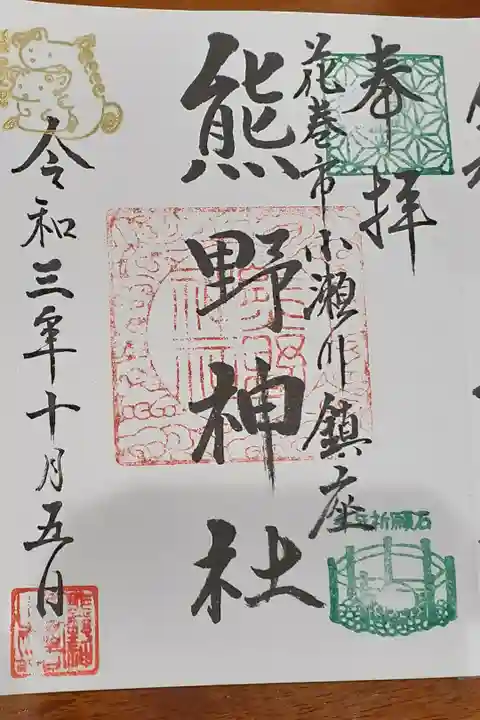 奉拝
花巻市小瀬川鎮座
熊野神社
令和三年十月五日
石願祈